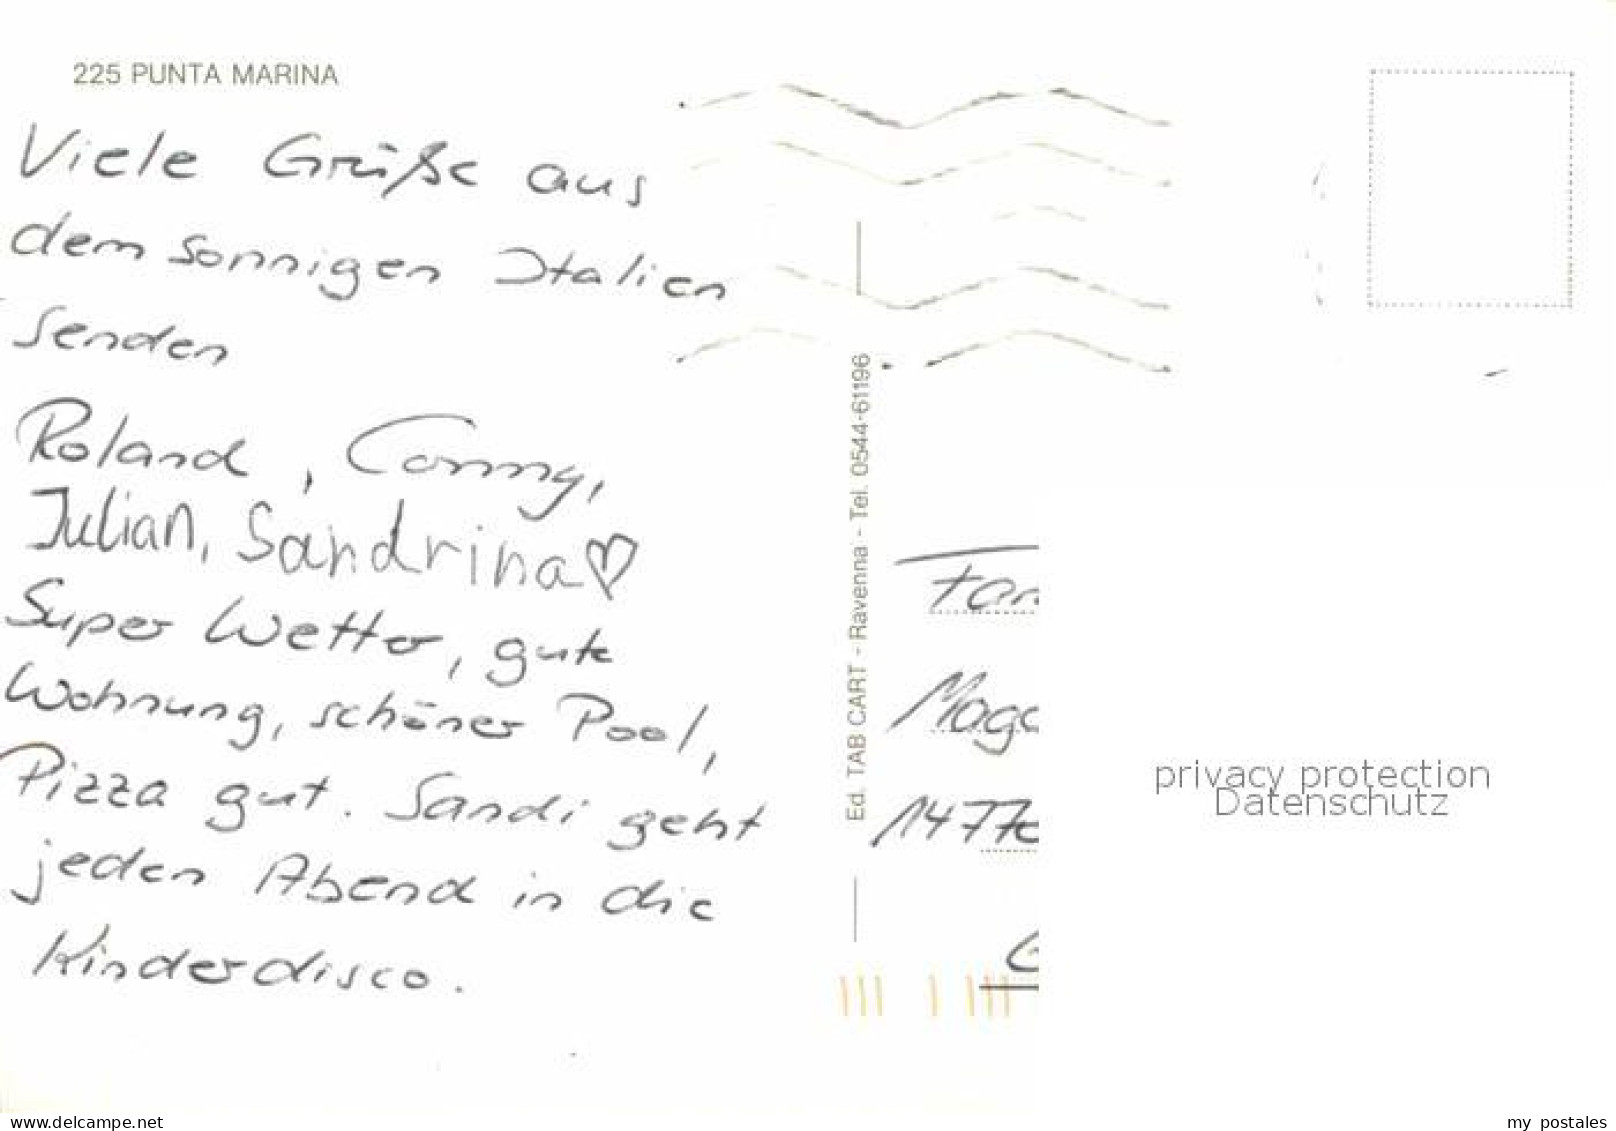 225 PUNTA MARINA
Viele Grüße aus
dem sonnigen Italien
senden
Roland, Conny,
Julian, Sandrina♡
Super Wetter, gute
Wohnung, schöner Pool,
Pizza gut. Sandi geht
jeden Abend in die
Kinderdisco.
Ed. TAB CART - Ravenna - Tel. 0544-61196
Fam
Magd
14770
privacy protection
Datenschutz
www.delcampe.net
my_postales